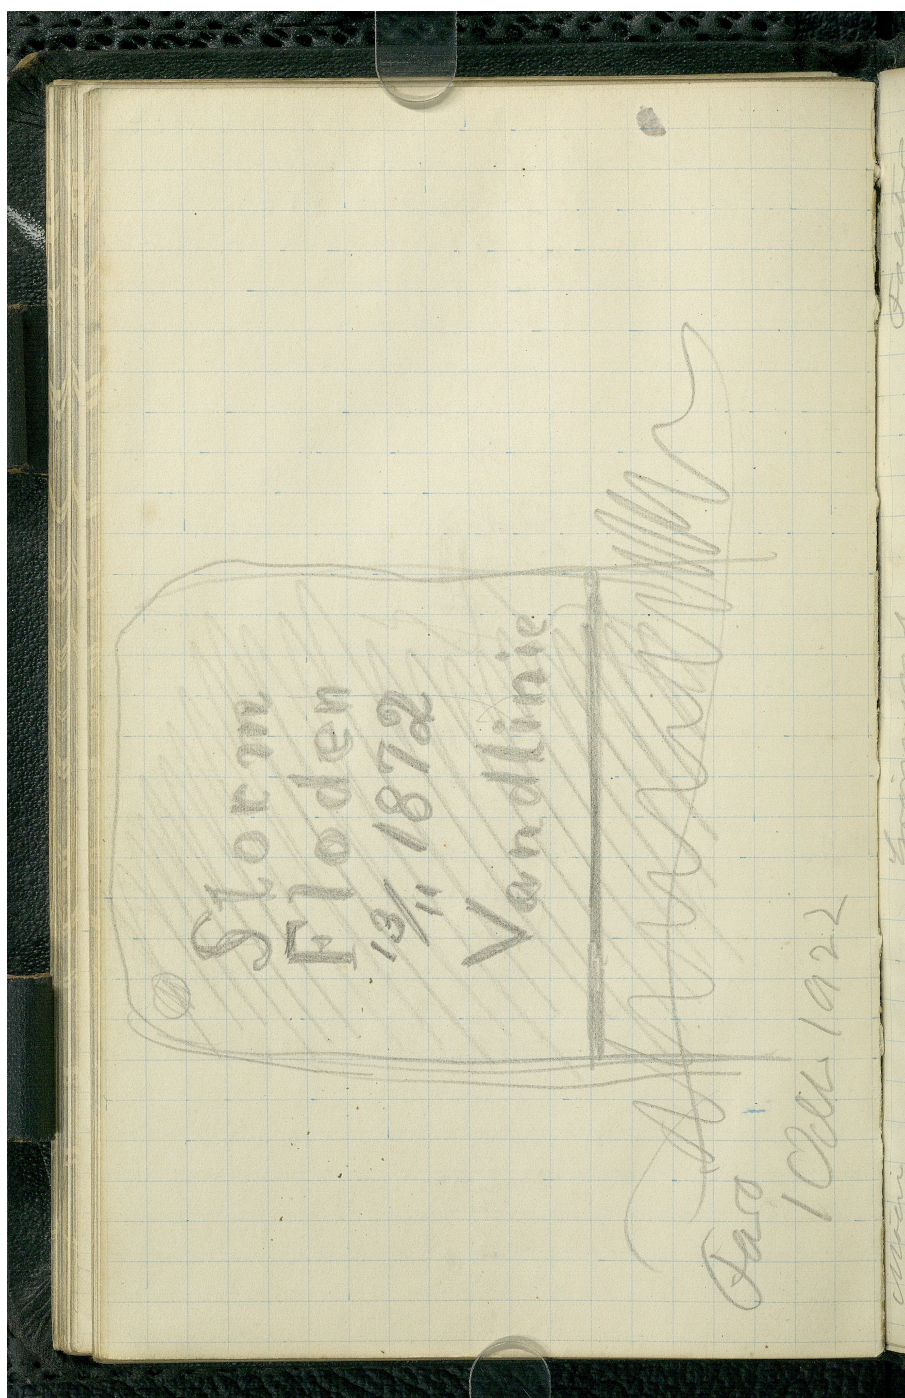 Storm
Floden
13/11 1872
Vandlinie
Farø
1 Oct. 1922